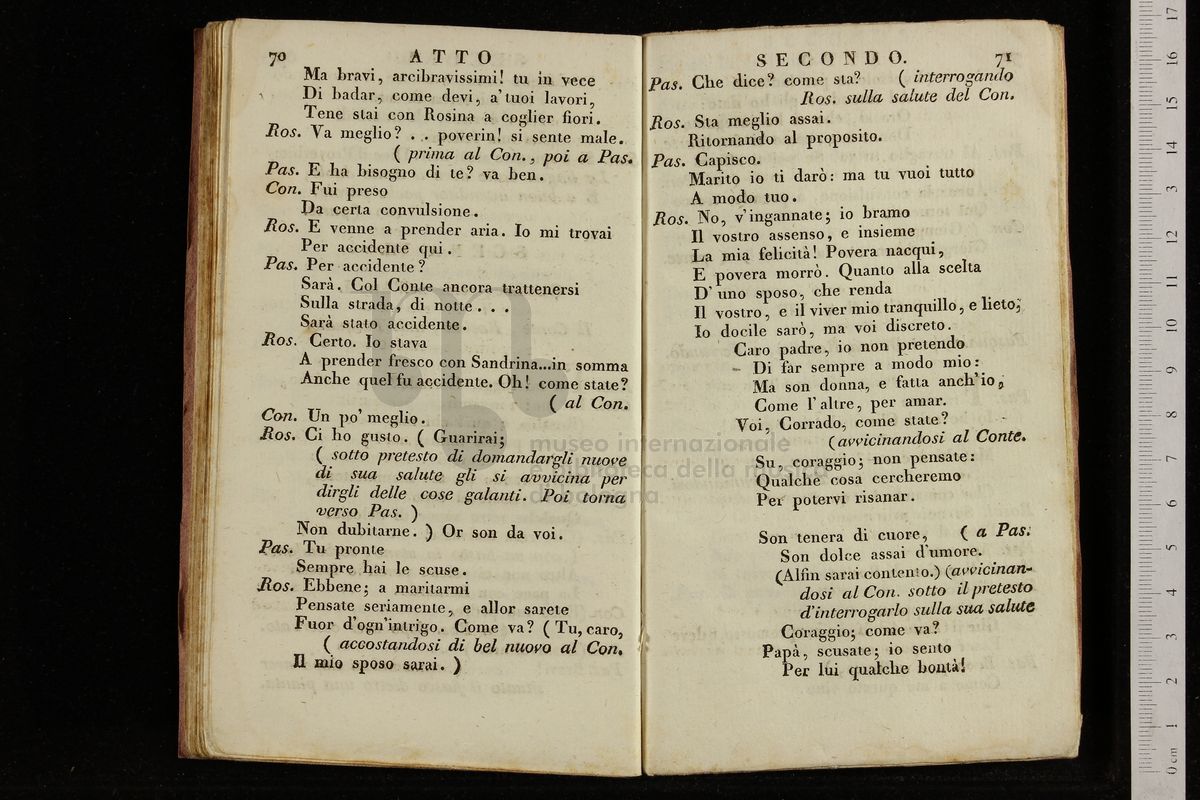 70 ATTO
Ma bravi, arcibravissimi! tu in vece
Di badar, come devi, a'tuoi lavori,
Tene stai con Rosina a coglier fiori.
Ros. Va meglio? . . poverin! si sente male.
( prima al Con., poi a Pas.
Pas. E ha bisogno di te? va ben.
Con. Fui preso
Da certa convulsione.
Ros. E venne a prender aria. Io mi trovai
Per accidente qui.
Pas. Per accidente?
Sarà. Col Conte ancora trattenersi
Sulla strada, di notte . . .
Sarà stato accidente.
Ros. Certo. Io stava
A prender fresco con Sandrina...in somma
Anche quel fu accidente. Oh! come state?
( al Con.
Con. Un po' meglio.
Ros. Ci ho gusto. ( Guarirai;
( sotto pretesto di domandargli nuove
di sua salute gli si avvicina per
dirgli delle cose galanti. Poi torna
verso Pas. )
Non dubitarne. ) Or son da voi.
Pas. Tu pronte
Sempre hai le scuse.
Ros. Ebbene; a maritarmi
Pensate seriamente, e allor sarete
Fuor d'ogn'intrigo. Come va? ( Tu, caro,
( accostandosi di bel nuovo al Con.
Il mio sposo sarai. )
SECONDO. 71
Pas. Che dice? come sta? ( interrogando
Ros. sulla salute del Con.
Ros. Sta meglio assai.
Ritornando al proposito.
Pas. Capisco.
Marito io ti darò: ma tu vuoi tutto
A modo tuo.
Ros. No, v'ingannate; io bramo
Il vostro assenso, e insieme
La mia felicità! Povera nacqui,
E povera morrò. Quanto alla scelta
D'uno sposo, che renda
Il vostro, e il viver mio tranquillo, e lieto;
Io docile sarò, ma voi discreto.
Caro padre, io non pretendo
Di far sempre a modo mio:
Ma son donna, e fatta anch'io,
Come l'altre, per amar.
Voi, Corrado, come state?
(avvicinandosi al Conte.
Su, coraggio; non pensate:
Qualche cosa cercheremo
Per potervi risanar.
Son tenera di cuore, ( a Pas.
Son dolce assai d'umore.
(Alfin sarai contento.) (avvicinan-
dosi al Con. sotto il pretesto
d'interrogarlo sulla sua salute
Coraggio; come va?
Papà, scusate; io sento
Per lui qualche bontà!
museo internazionale
e biblioteca della musica
di bologna
0 cm 1 2 3 4 5 6 7 8 9 10 11 12 13 14 15 16 17